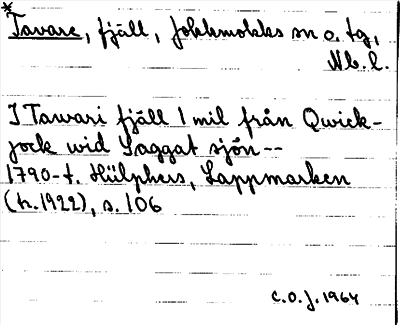 * Tavare, fjäll, Jokkmokks sn o. tg,
Nb. l.
I Tawari fjäll 1 mil från Qwick-
jock wid Saggat sjön--
1790-t. Hülphers, Lappmarken
(tr. 1922), s. 106
C.O.J. 1964